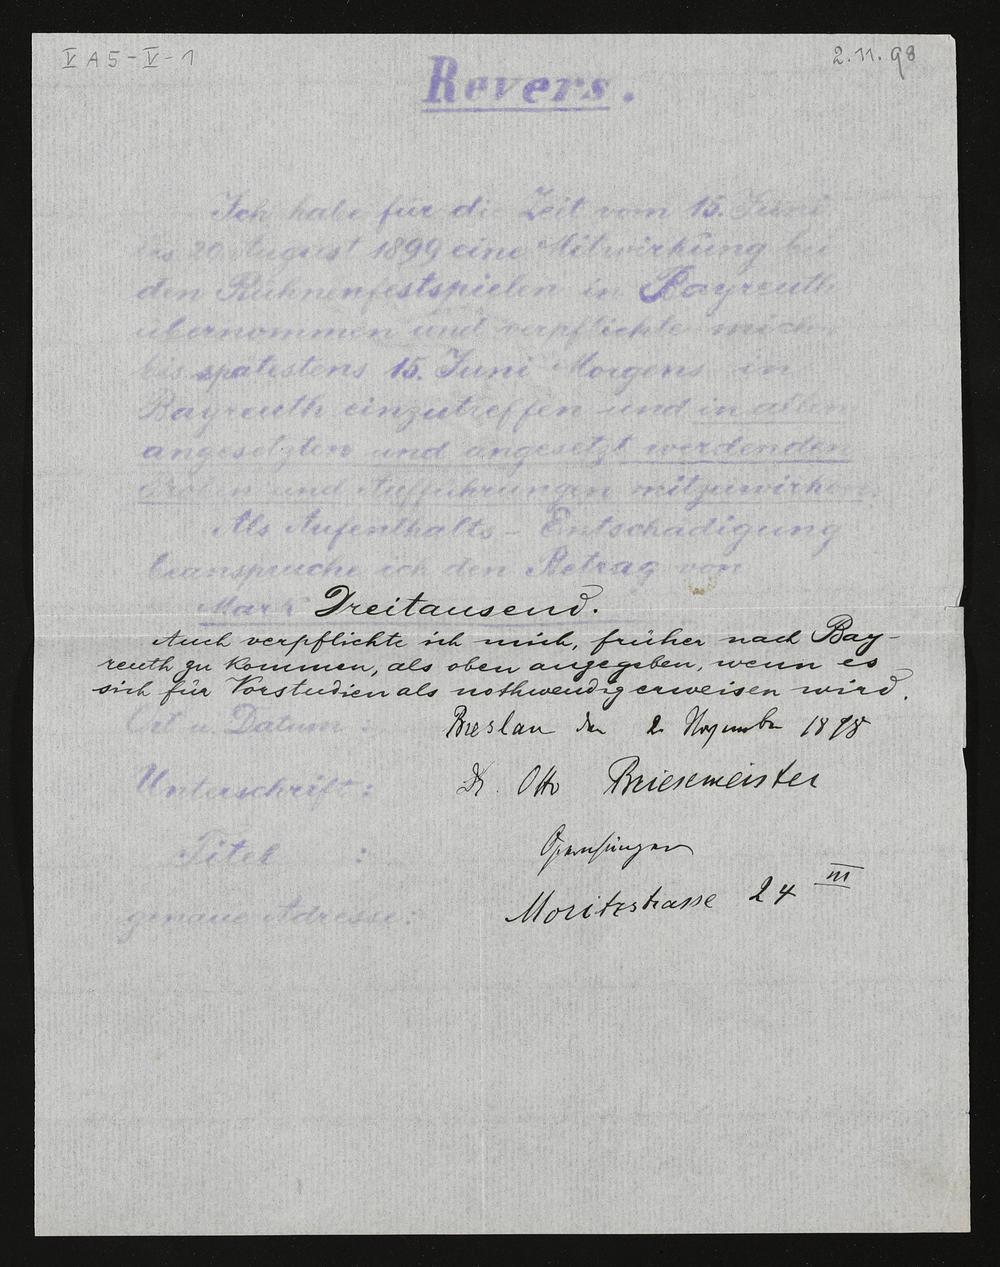 V A 5 - V - 1
2.11.98
Revers.
Ich habe für die Zeit vom 15. Juni
bis 20. August 1899 eine Mitwirkung bei
den Bühnenfestspielen in Bayreuth
übernommen und verpflichte mich,
bis spätestens 15. Juni Morgens in
Bayreuth einzutreffen und in allen
angesetzten und angesetzt werdenden
Proben und Aufführungen mitzuwirken.
Als Aufenthalts-Entschädigung
beanspruche ich den Betrag von
Mark Dreitausend.
Auch verpflichte ich mich, früher nach Bay-
reuth zu kommen, als oben angegeben, wenn es
sich für Vorstudien als nothwendig erweisen wird.
Ort u. Datum: Breslau den 2. November 1898
Unterschrift: Dr. Otto Briesemeister
Titel: Opernsänger
genaue Adresse: Moritzstrasse 24 III